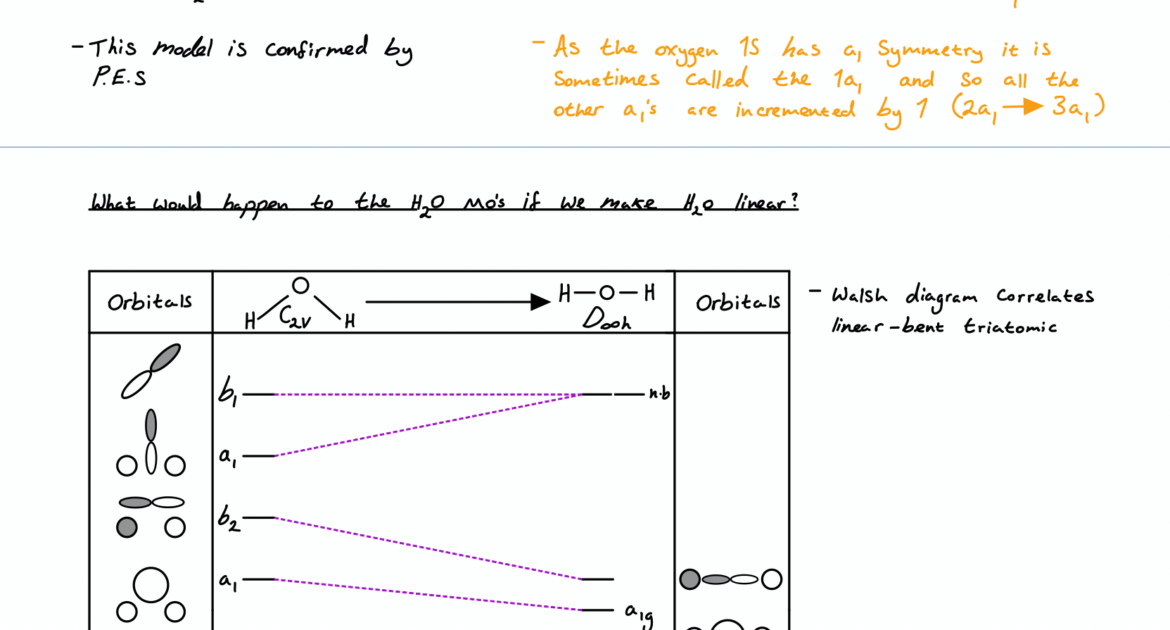 - This model is confirmed by
P.E.S
- As the oxygen 1s has a₁ symmetry it is
sometimes called the 1a₁ and so all the
other a₁'s are incremented by 1 (2a₁ → 3a₁)
What would happen to the H₂O MO's if we make H₂O linear?
Orbitals
O
H C₂ᵥ H
H-O-H
D∞h
Orbitals
- Walsh diagram correlates
linear-bent triatomic
b₁
n.b
a₁
b₂
a₁
a₁g